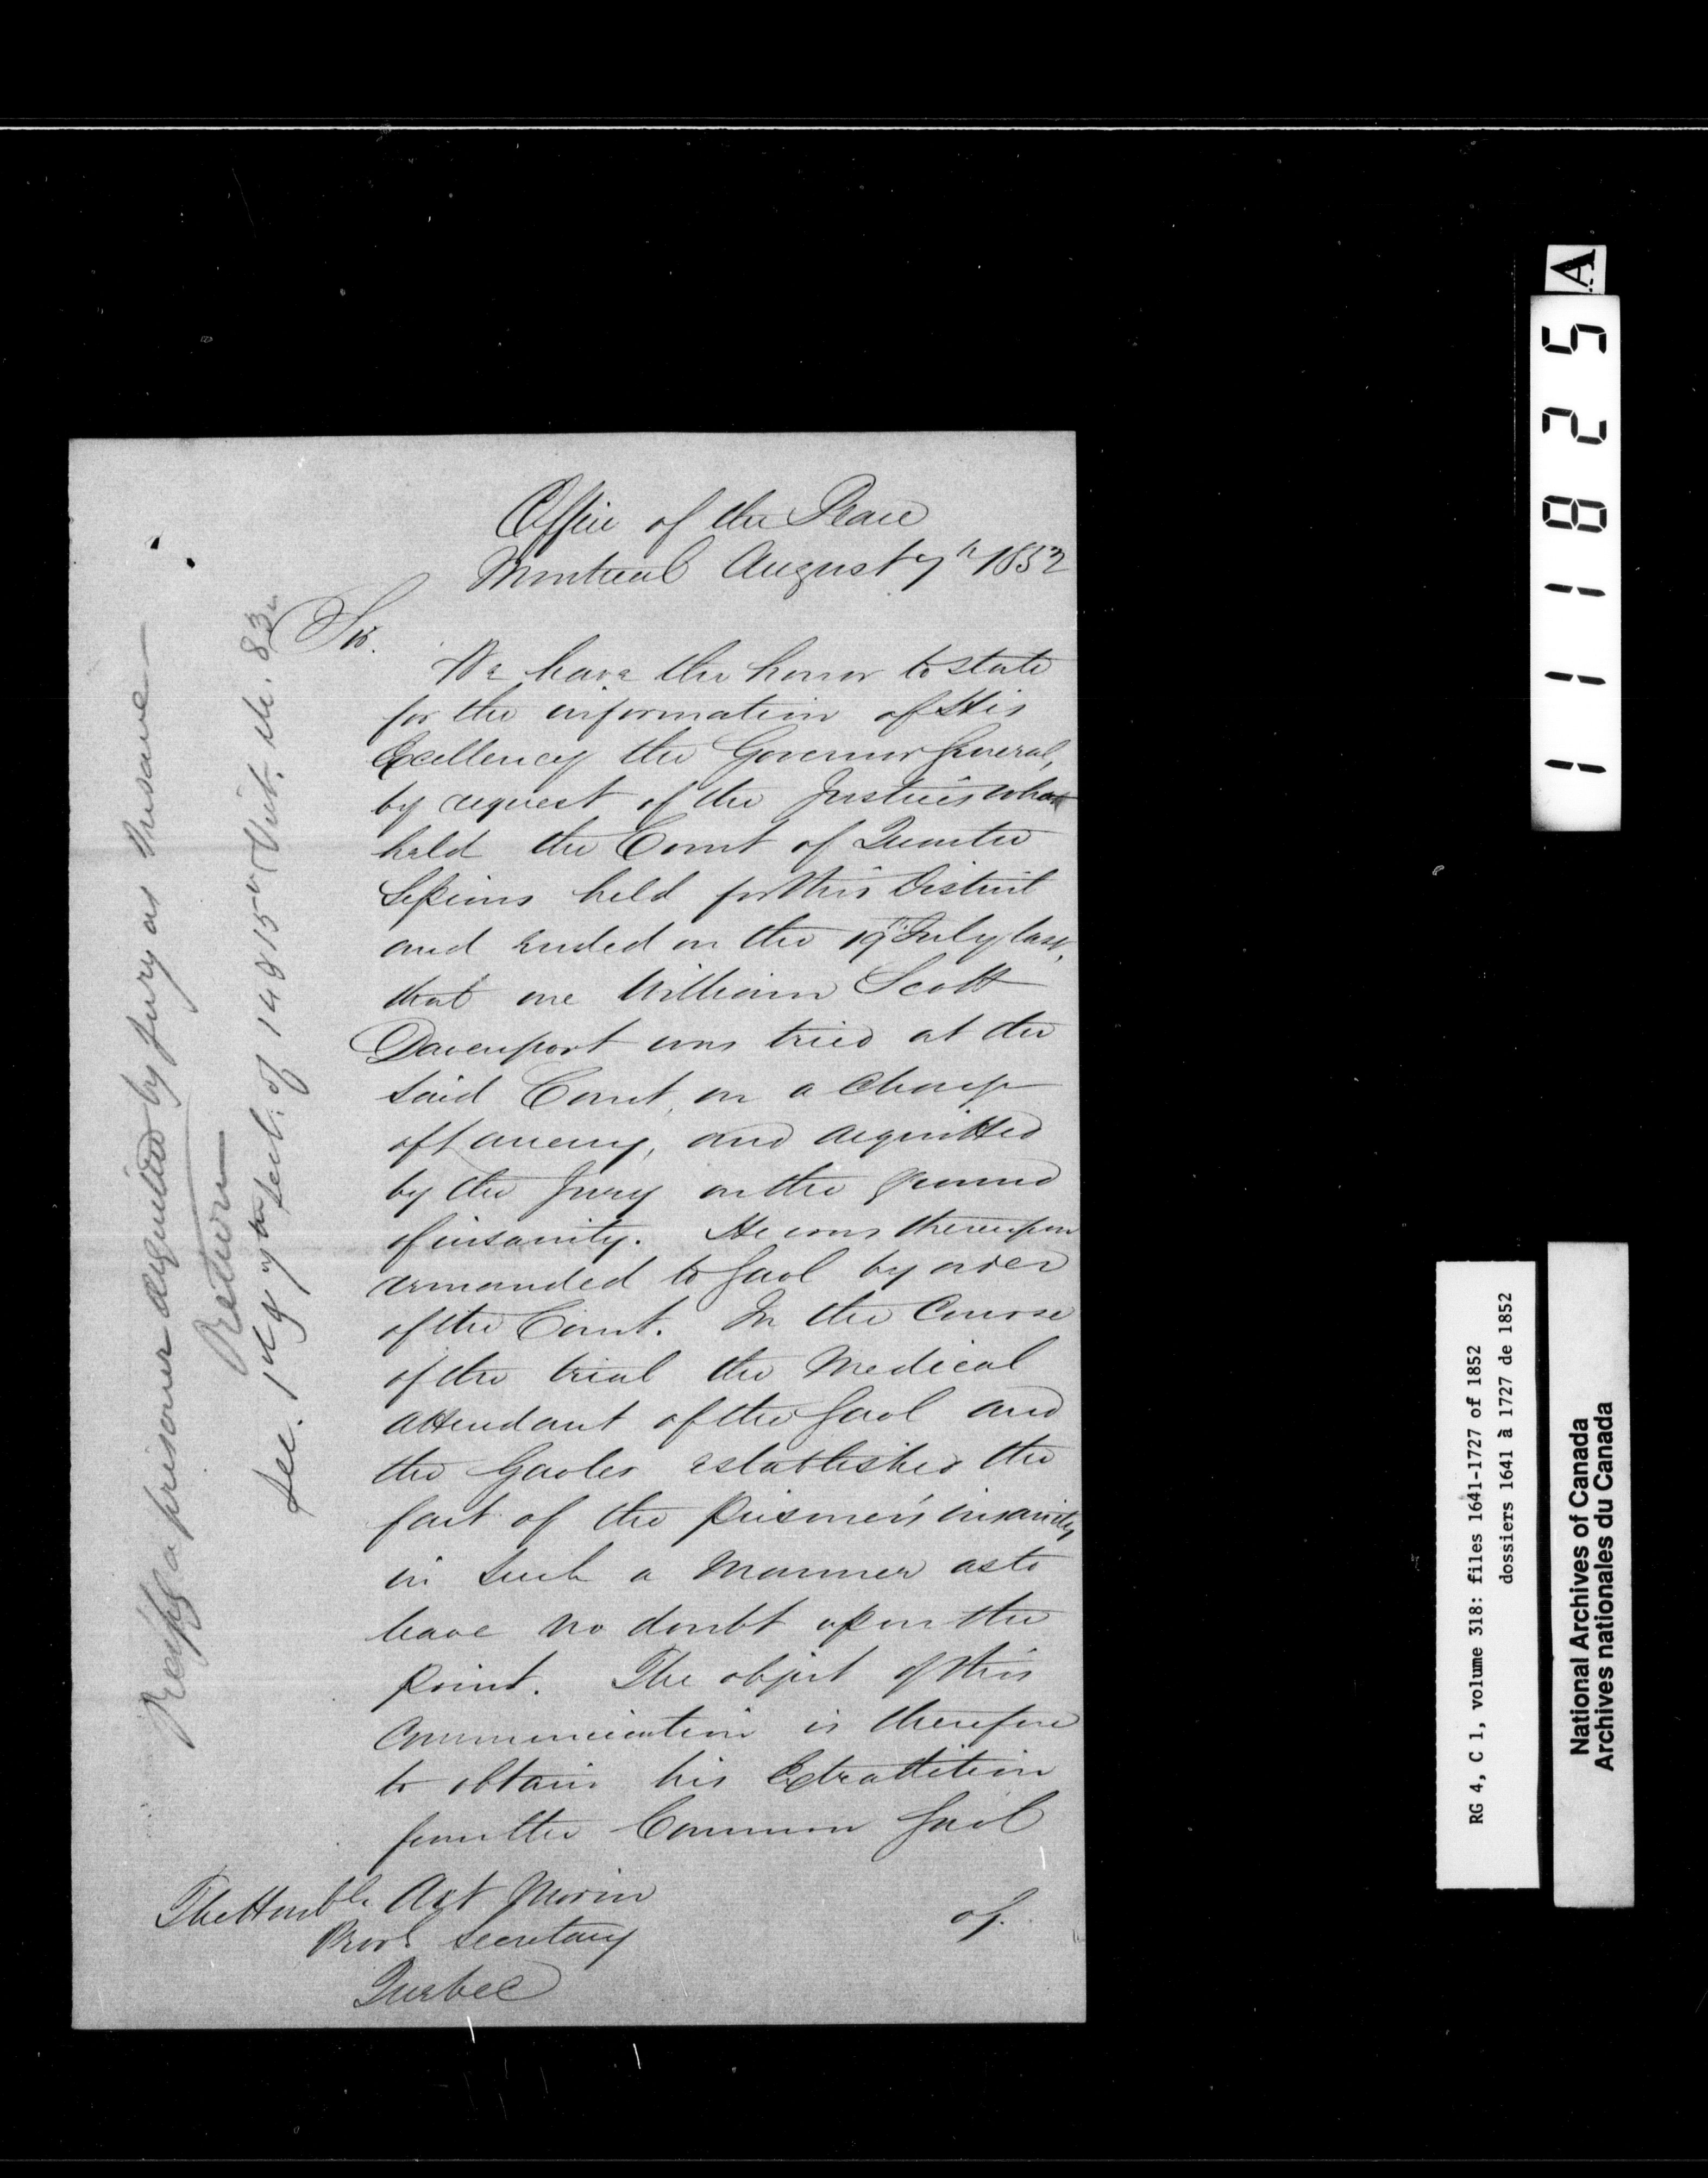 Office of the Peace
Montreal August 7th 1852
Sir.
We have the honor to state
for the information of His
Excellency the Governor General,
by request of the Justices who
held the Court of Quarter
Sessions held for this District
and ended on the 19th July last,
that one William Scott
Davenport was tried at the
said Court, on a charge
of Larceny, and acquitted
by the Jury on the ground
of insanity. He was thereupon
remanded to Gaol by order
of the Court. In the Course
of the trial the Medical
attendant of the Gaol and
the Gaoler established the
fact of the Prisoner's insanity
in such a manner as to
leave no doubt upon the
point. The object of this
communication is therefore
to obtain his Extradition
from the Common Gaol
of.
The Honble A N Morin
Provl Secretary
Quebec
a prisoner acquitted by Jury as Insane
Return
See. 1st & 7th Sect. of 14 & 15 Vict. ch. 83
A
111825
RG 4, C 1, volume 318: files 1641-1727 of 1852
dossiers 1641 à 1727 de 1852
National Archives of Canada
Archives nationales du Canada